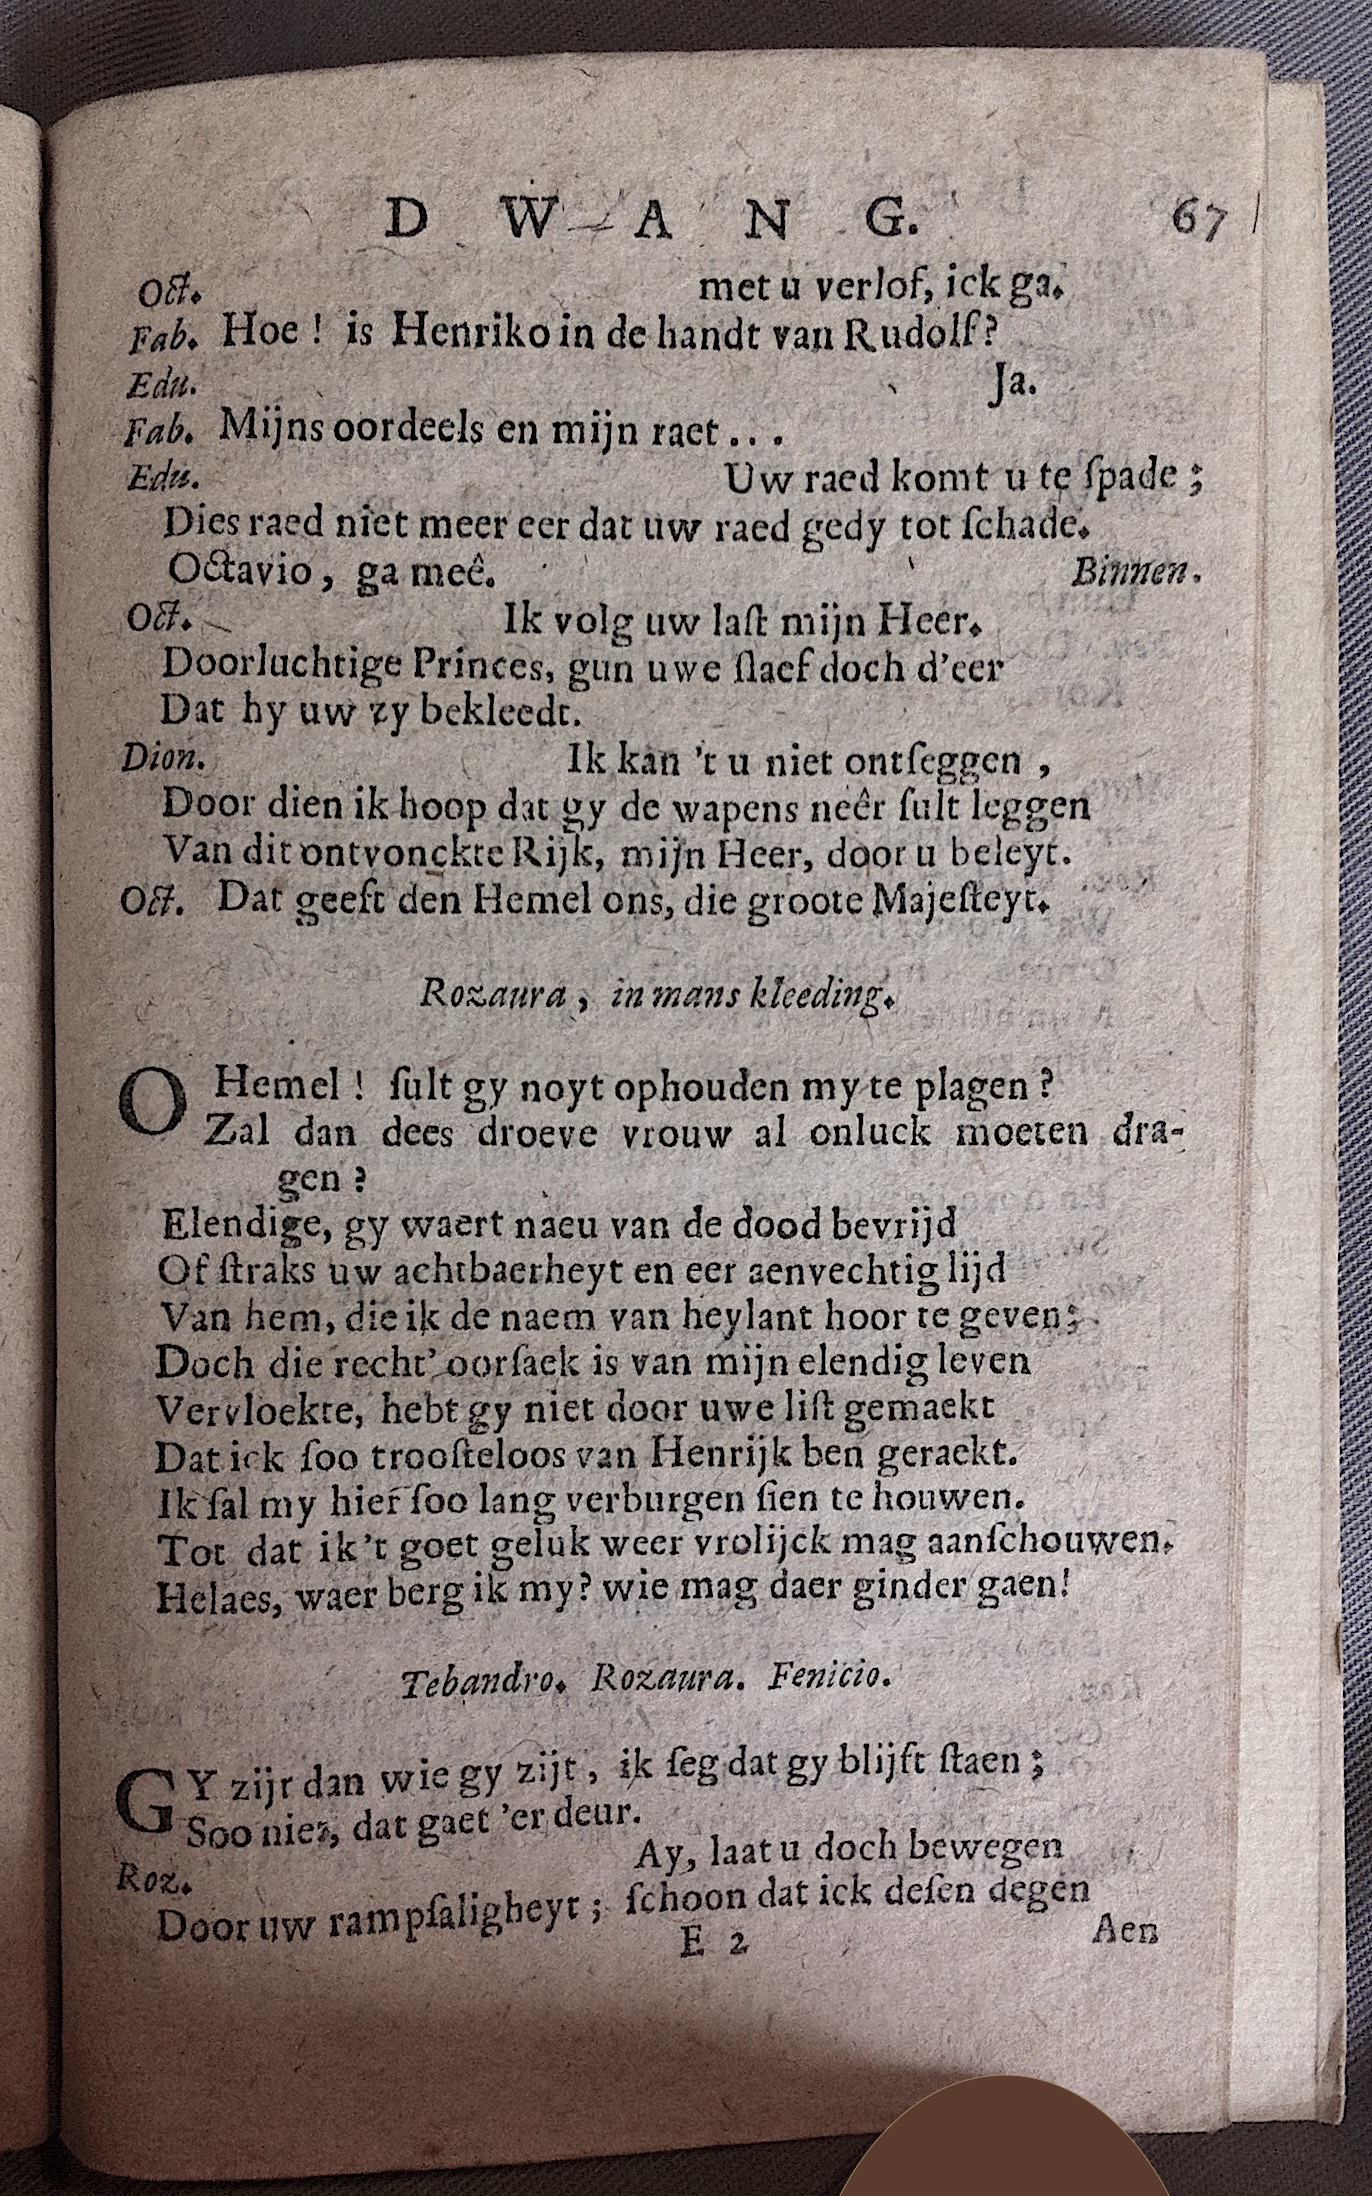 D W A N G. 67
Oct. met u verlof, ick ga.
Fab. Hoe ! is Henriko in de handt van Rudolf?
Edu. Ja.
Fab. Mijns oordeels en mijn raet . . .
Edu. Uw raed komt u te ſpade ;
Dies raed niet meer eer dat uw raed gedy tot ſchade.
Octavio, ga meê. Binnen.
Oct. Ik volg uw laſt mijn Heer.
Doorluchtige Princes, gun uwe ſlaef doch d'eer
Dat hy uw zy bekleedt.
Dion. Ik kan 't u niet ontſeggen ,
Door dien ik hoop dat gy de wapens neêr ſult leggen
Van dit ontvonckte Rijk, mijn Heer, door u beleyt.
Oct. Dat geeft den Hemel ons, die groote Majeſteyt.
Rozaura , in mans kleeding.
O Hemel ! ſult gy noyt ophouden my te plagen ?
Zal dan dees droeve vrouw al onluck moeten dra-
gen ?
Elendige, gy waert naeu van de dood bevrijd
Of ſtraks uw achtbaerheyt en eer aenvechtig lijd
Van hem, die ik de naem van heylant hoor te geven;
Doch die recht' oorſaek is van mijn elendig leven
Vervloekte, hebt gy niet door uwe liſt gemaekt
Dat ick ſoo trooſteloos van Henrijk ben geraekt.
Ik ſal my hier ſoo lang verburgen ſien te houwen.
Tot dat ik 't goet geluk weer vrolijck mag aanſchouwen.
Helaes, waer berg ik my? wie mag daer ginder gaen!
Tebandro. Rozaura. Fenicio.
GY zijt dan wie gy zijt , ik ſeg dat gy blijft ſtaen ;
Soo niet, dat gaet 'er deur.
Roz. Ay, laat u doch bewegen
Door uw rampſaligheyt ; ſchoon dat ick deſen degen
E 2 Aen